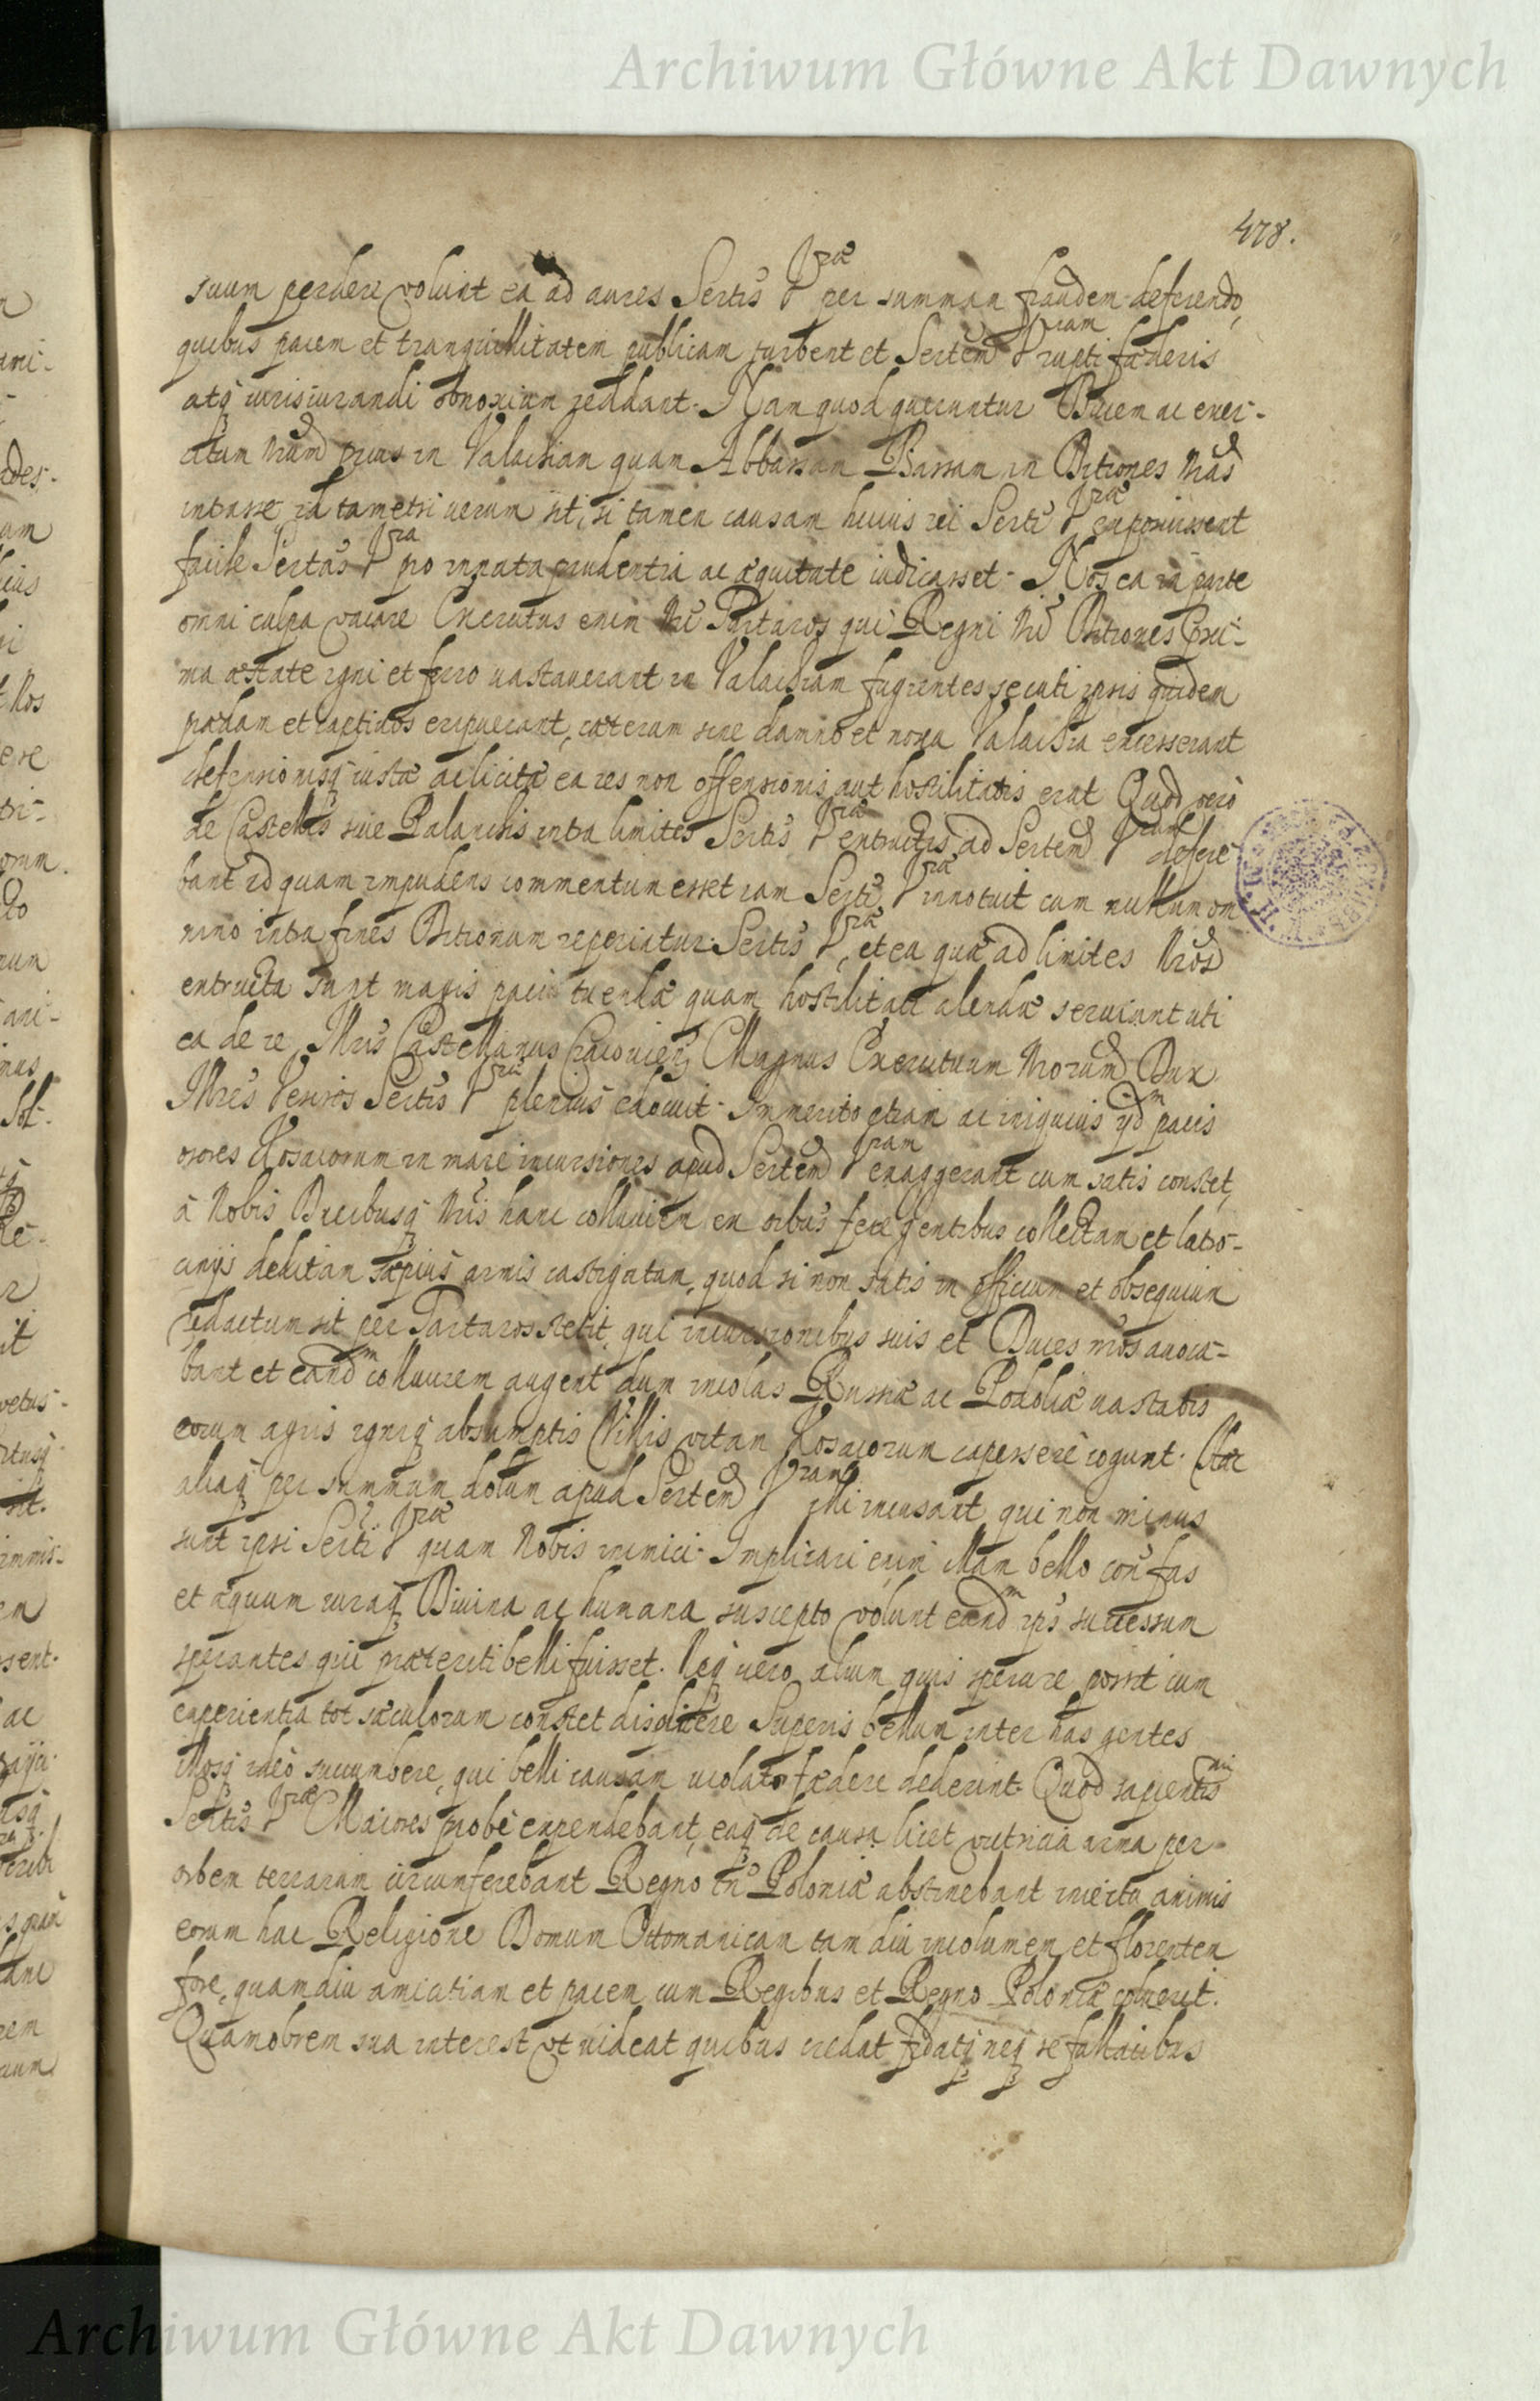 Archiwum Główne Akt Dawnych
478.
suum perdere volunt ea ad aures Sertis Vræ per summan fraudem deferendo,
quibus pacem et tranquillitatem publicam turbent et Sertem Vram rupti fæderis
atq iurisiurandi obnoxiam reddant. Nam quod queruntur Ducem ac exer-
citum Nrum prius in Valachiam quam Abbassam Bassam in Ditiones Nras
intrasse id tametsi uerum sit, si tamen causam huius rei Serti Vræ exposuissent
facile Sertas Vra pro innata prudentia ac æquitate iudicasset. Nos ea in parte
omni culpa vacare Exercitus enim Nri Tartaros qui Regni Nri Ditiones Prui-
ma æstate igni et ferro uastauerant in Valachiam fugientes secuti ipsis quidem
prædam et captiuos eripuerant, cæterum sine damno et noxa Valachia excesserant
defensionisq iustæ ac licitæ ea res non offensionis aut hostilitatis erat Quod vero
de Castellis siue Palanchis intra limites Sertis Vræ extructis ad Sertem Vram defere-
bant id quam impudens commentum esset iam Serti Vræ innotuit cum nullum om
nino intra fines Ditionum reperiatur Sertis Vræ, et ea quæ ad limites Nros
extructa sunt magis paci tuendæ quam hostilitati alendæ seruiant uti
ea de re Illris Castellanus Cracouien Magnus Exercituum Nrorum Dux
Illres Vesiros Sertis Vræ plenius edocuit. Immerito etiam ac iniquius ijdm pacis
osores Kosacorum in mare incursiones apud Sertem Vram exaggerant cum satis constet,
à Nobis Ducibusq Nris hanc colluuiem ex oibus fere gentibus collectam et latro-
cinijs deditam sæpius armis castigatam, quod si non satis in officium et obsequium
redactum sit per Tartaros stetit, qui incursionibus suis et Duces nros auoca-
bant et eandm colluuiem augent dum incolas Russiæ ac Podoliæ uastatis
eorum agris igniq absumptis Villis vitam Kosacorum capessere cogunt. Hæc
aliaq per summum dolum apud Sertem Vram illi incusant qui non minus
sunt ipsi Serti Vræ quam Nobis inimici. Implicari enim illam bello con fas
et æquum iuraq Diuina ac humana suscepto volunt eandm ips successum
sperantes qui præteriti belli fuisset. Neq uero alium quis sperare possit cum
experientia tot sæculorum constet displicere Superis bellum inter has gentes
illosq ideo succumbere, qui belli causam uiolato fædere dederint. Quod sapientissmi
Sertis Vræ Maiores probe expendebant, eaq de causa licet victricia arma per
orbem terrarum circumferebant Regno tn Poloniæ abstinebant inerta animis
eorum hac Religione Domum Ottomanicam tam diu incolumem et florentem
fore, quamdiu amicitiam et pacem cum Regibus et Regno Poloniæ coluerit.
Quamobrem sua interest vt uideat quibus credat fidatq neq se fallacibus
Archiwum Główne Akt Dawnych